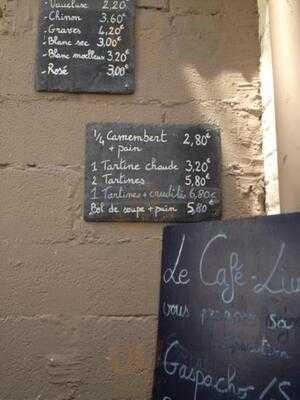 - Vaucluse 2,20
- Chinon 3,60
- Graves 4,20€
- Blanc sec 3,00
- Blanc moelleux 3,20
- Rosé 3,00€
1/4 Camembert 2,80€
+ pain
1 Tartine chaude 3,20€
2 Tartines 5,80€
1 Tartines + crudité 6,80€
Bol de soupe + pain 5,80€
Le Café-
vous
Gaspacho